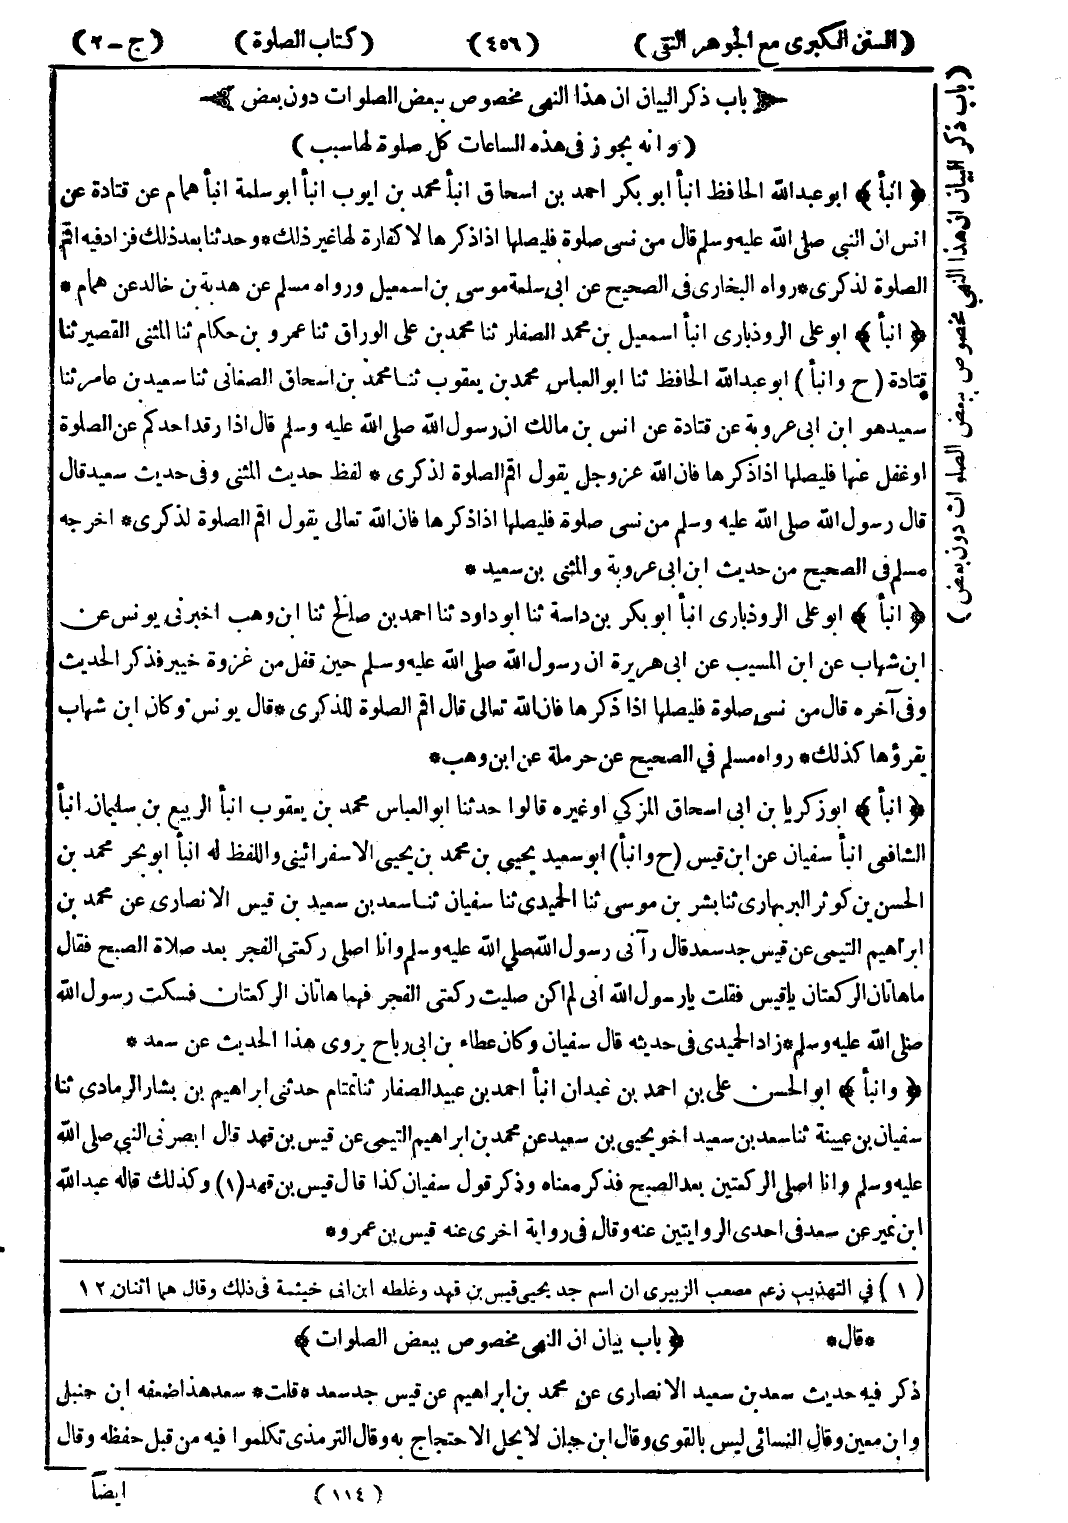 (السنن الكبرى مع الجوهر النقى) (٤٥٦) (كتاب الصلوة) (ج - ٢)
(باب ذكر البيان ان هذا النهى مخصوص ببعض الصلوات دون بعض)
﴿ باب ذكر البيان ان هذا النهى مخصوص ببعض الصلوات دون بعض ﴾
(وانه يجوز فى هذه الساعات كل صلوة لها سبب)
﴿ انبأ ﴾ ابو عبد الله الحافظ انبأ ابو بكر احمد بن اسحاق انبأ محمد بن ايوب انبأ ابو سلمة انبأ همام عن قتادة عن
انس ان النبى صلى الله عليه وسلم قال من نسى صلوة فليصلها اذا ذكرها لا كفارة لها غير ذلك * وحدثنا بعد ذلك فزاد فيه اقم
الصلوة لذكرى * رواه البخارى فى الصحيح عن ابى سلمة موسى بن اسمعيل ورواه مسلم عن هدبة بن خالد عن همام *
﴿ انبأ ﴾ ابو على الروذبارى انبأ اسمعيل بن محمد الصفار ثنا محمد بن على الوراق ثنا عمرو بن حكام ثنا المثنى القصير ثنا
قتادة (ح وانبأ) ابو عبد الله الحافظ ثنا ابو العباس محمد بن يعقوب ثنا محمد بن اسحاق الصغانى ثنا سعيد بن عامر ثنا
سعيد هو ابن ابى عروبة عن قتادة عن انس بن مالك ان رسول الله صلى الله عليه وسلم قال اذا رقد احدكم عن الصلوة
او غفل عنها فليصلها اذا ذكرها فان الله عز وجل يقول اقم الصلوة لذكرى * لفظ حديث المثنى وفى حديث سعيد قال
قال رسول الله صلى الله عليه وسلم من نسى صلوة فليصلها اذا ذكرها فان الله تعالى يقول اقم الصلوة لذكرى * اخرجه
مسلم فى الصحيح من حديث ابن ابى عروبة والمثنى بن سعيد *
﴿ انبأ ﴾ ابو على الروذبارى انبأ ابو بكر بن داسة ثنا ابو داود ثنا احمد بن صالح ثنا ابن وهب اخبرنى يونس عن
ابن شهاب عن ابن المسيب عن ابى هريرة ان رسول الله صلى الله عليه وسلم حين قفل من غزوة خيبر فذكر الحديث
وفى آخره قال من نسى صلوة فليصلها اذا ذكرها فان الله تعالى قال اقم الصلوة للذكرى * قال يونس وكان ابن شهاب
يقرؤها كذلك * رواه مسلم في الصحيح عن حرملة عن ابن وهب *
﴿ انبأ ﴾ ابو زكريا بن ابى اسحاق المزكي او غيره قالوا حدثنا ابو العباس محمد بن يعقوب انبأ الربيع بن سليمان انبأ
الشافعى انبأ سفيان عن ابن قيس (ح وانبأ) ابو سعيد يحيى بن محمد بن يحيى الاسفرائينى واللفظ له انبأ ابو بحر محمد بن
الحسن بن كوثر البربهارى ثنا بشر بن موسى ثنا الحميدى ثنا سفيان ثنا سعد بن سعيد بن قيس الانصارى عن محمد بن
ابراهيم التيمى عن قيس جد سعد قال رآنى رسول الله صلى الله عليه وسلم وانا اصلى ركعتى الفجر بعد صلاة الصبح فقال
ما هاتان الركعتان يا قيس فقلت يا رسول الله انى لم اكن صليت ركعتى الفجر فهما هاتان الركعتان فسكت رسول الله
صلى الله عليه وسلم * زاد الحميدى فى حديثه قال سفيان وكان عطاء بن ابى رباح يروى هذا الحديث عن سعد *
﴿ وانبأ ﴾ ابو الحسن على بن احمد بن عبدان انبأ احمد بن عبيد الصفار ثنا تمتام حدثنى ابراهيم بن بشار الرمادى ثنا
سفيان بن عيينة ثنا سعد بن سعيد اخو يحيى بن سعيد عن محمد بن ابراهيم التيمى عن قيس بن قهد قال ابصرنى النبي صلى الله
عليه وسلم وانا اصلى الركعتين بعد الصبح فذكر معناه وذكر قول سفيان كذا قال قيس بن قهد (١) وكذلك قاله عبد الله
ابن نمير عن سعد فى احدى الروايتين عنه وقال فى رواية اخرى عنه قيس بن عمرو *
(١) في التهذيب زعم مصعب الزبيرى ان اسم جد يحيى قيس بن قهد وغلطه ابن ابى خيثمة فى ذلك وقال هما اثنان ١٢
* قال * ﴿ باب بيان ان النهى مخصوص ببعض الصلوات ﴾
ذكر فيه حديث سعد بن سعيد الانصارى عن محمد بن ابراهيم عن قيس جد سعد * قلت * سعد هذا ضعفه ابن حنبل
وابن معين وقال النسائى ليس بالقوى وقال ابن حبان لا يحل الاحتجاج به وقال الترمذى تكلموا فيه من قبل حفظه وقال
ايضاً
(١١٤)